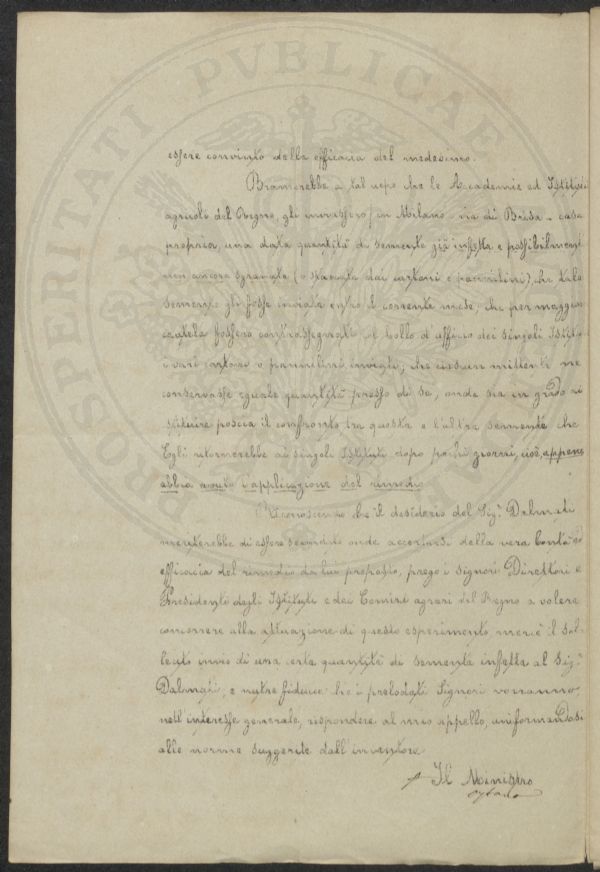 PROSPERITATI PVBLICAE
essere convinto della efficacia del medesimo.
Bramerebbe a tal uopo che le Accademie ed Istituti
agricoli del Regno, gli inviassero in Milano via di Brisa - casa
propria, una data quantità di semente già infetta e possibilment
non ancora sgranata (o staccata dai cartoni e pannilini), che tale
semente gli fosse inviata entro il corrente mese, che per maggior
cautela fossero contrassegnati col bollo d'ufficio dei singoli Istituti
i vari cartoni o pannilini inviati; che ciascun mittente ne
conservasse eguale quantità presso di se, onde sia in grado
istituire poscia il confronto tra questa e l'altra semente che
Egli ritornerebbe ai singoli Istituti dopo pochi giorni, cioè, appena
abbia avuto l'applicazione del rimedio
Riconoscendo che il desiderio del Sig.r Dalmati
meriterebbe di essere secondato onde accertarsi della vera bontà ed
efficacia del rimedio da lui proposto, prego i Signori Direttori e
Presidenti degli Istituti e dei Comizi agrari del Regno a volere
concorrere alla attuazione di questo esperimento, mercè il sol
lecito invio di una certa quantità di semente infetta al Sig.r
Dalmati; e nutro fiducia che i prelodati Signori vorranno,
nell'interesse generale, rispondere al mio appello, uniformandosi
alle norme suggerite dall'inventore
Il Ministro